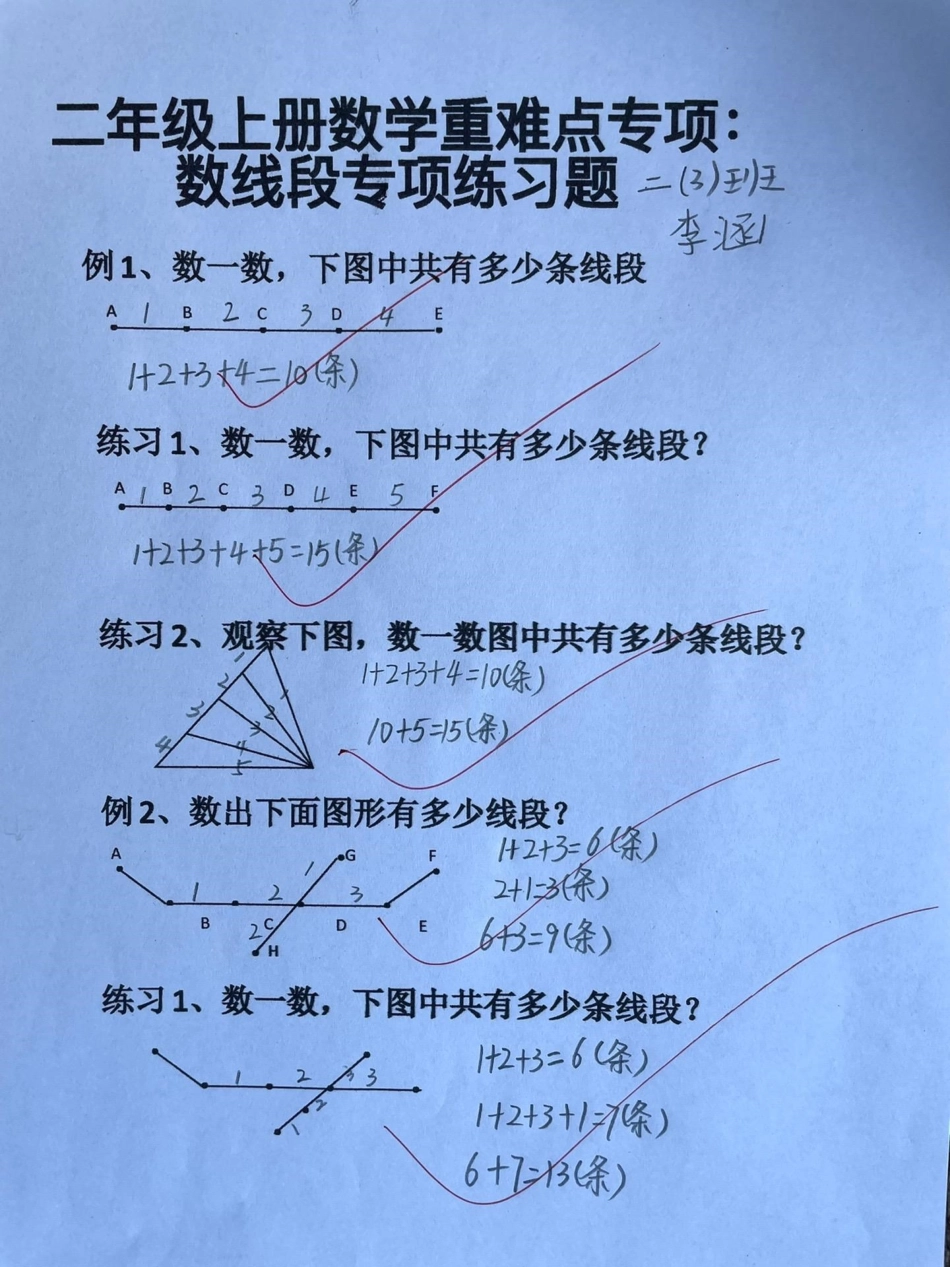 二年级上册数学重难点专项：
数线段专项练习题 二(3)班
李涵
例1、数一数，下图中共有多少条线段
A 1 B 2 C 3 D 4 E
1+2+3+4=10(条)
练习1、数一数，下图中共有多少条线段？
A 1 B 2 C 3 D 4 E 5 F
1+2+3+4+5=15(条)
练习2、观察下图，数一数图中共有多少条线段？
1 2 3 4 1 2 3 4 5
1+2+3+4=10(条)
10+5=15(条)
例2、数出下面图形有多少线段？
A G F
1 2 1 3
B 2 C D E
H
1+2+3=6(条)
2+1=3(条)
6+3=9(条)
练习1、数一数，下图中共有多少条线段？
1 2 3 3
2
1
1+2+3=6(条)
1+2+3+1=7(条)
6+7=13(条)